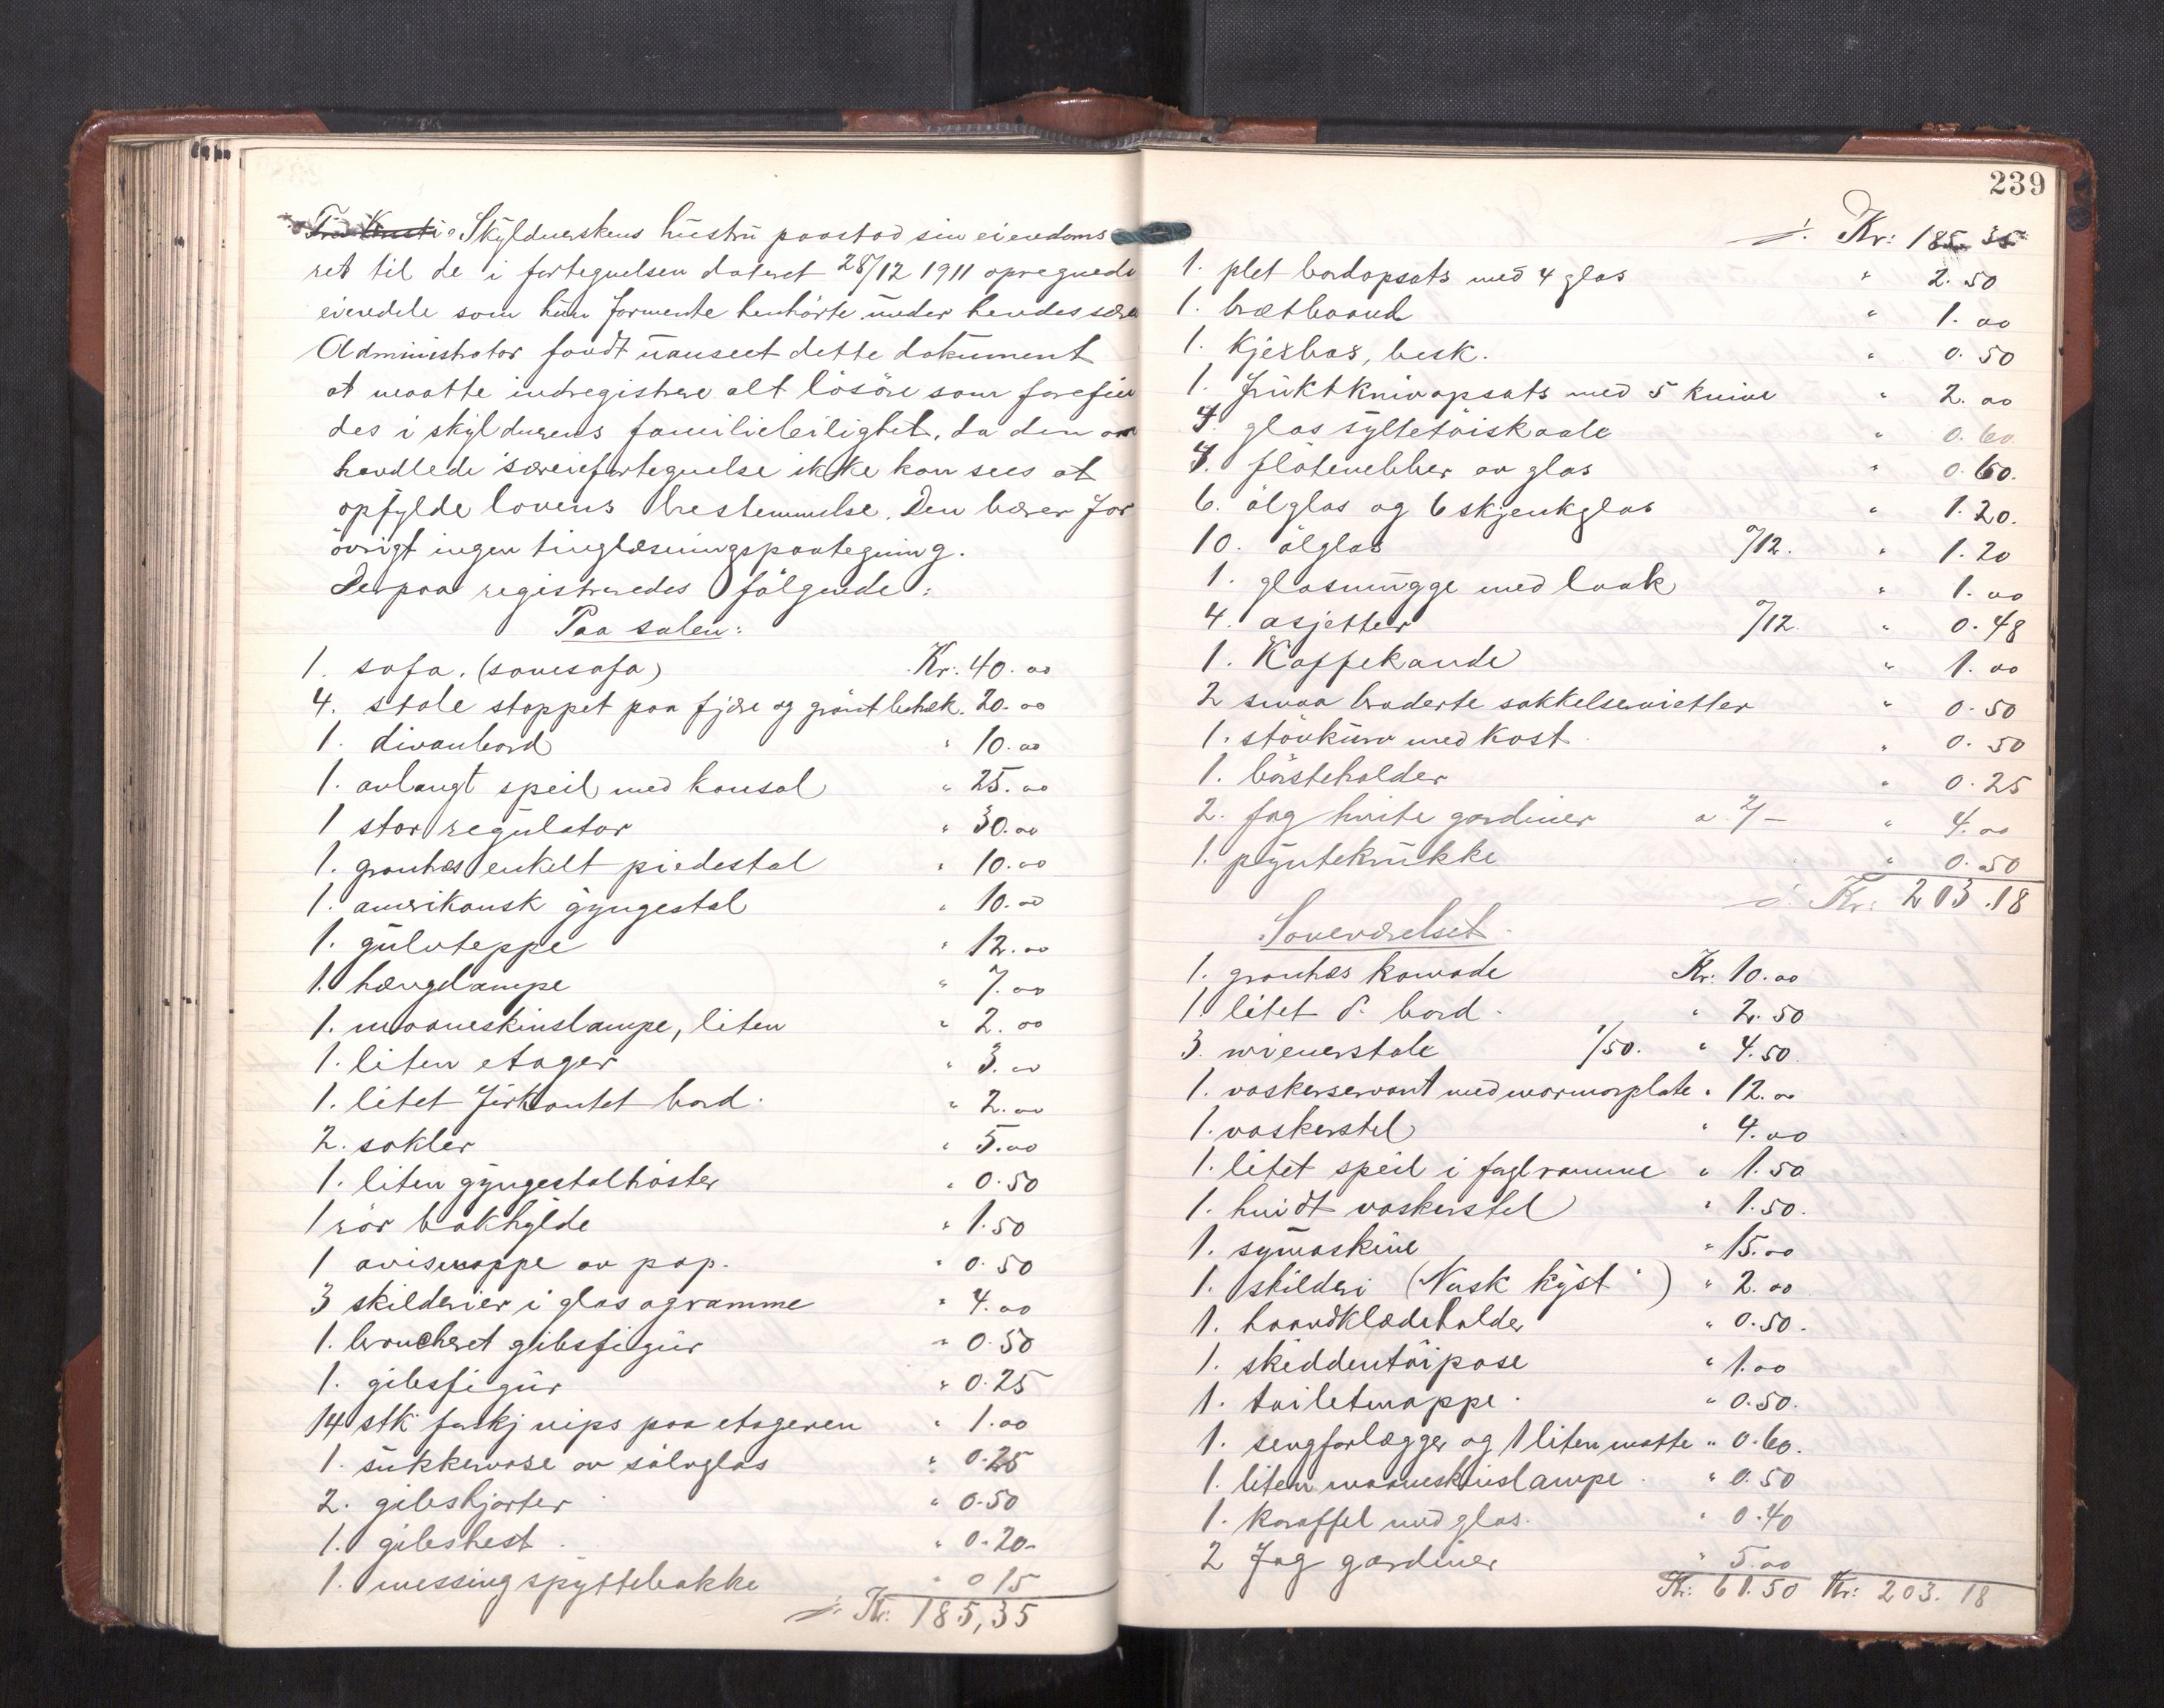 Skyldnerskens hustru paastod sin eiendoms
ret til de i fortegnelsen dateret 28/12 1911 opregnede
eiendele som hun formente henhörte under hendes særeie
Administrator fandt uanseet dette dokument
at maatte indregistrere alt lösöre som forefin
des i skyldnerens familieleilighet, da den om
handlede særeiefortegnelse ikke kan sees at
opfylde lovens bestemmelse. Den bærer for
övrigt ingen tinglæsningspaategning.
Derpaa registreredes følgende:
Paa salen:
1. sofa. (sovesofa) Kr. 40.00
4. stole stoppet paa fjære og grönt betræk. 20.00
1. divanbord " 10.00
1. avlangt speil med konsol " 25.00
1 stor regulator " 30.00
1. granhæs enkelt piedestal " 10.00
1. amerikansk gyngestol " 10.00
1. gulvteppe " 12.00
1. hængelampe " 7.00
1. maaneskinslampe, liten " 2.00
1. liten etager " 3.00
1. litet firkantet bord. " 2.00
2. sokler " 5.00
1. liten gyngestolhöster " 0.50
1 rör bokhylde " 1.50
1 avismappe av pap. " 0.50
3 skilderier i glas og ramme " 4.00
1. broncheret gibsfigur " 0.50
1. gibsfigur " 0.25
14 stk forskj nips paa etageren " 1.00
1. sukkervase av sölvglas " 0.25
2. gibshjorter " 0.50
1. gibshest " 0.20
1. messing spyttebakke " 0 15
./. Kr: 185,35
239
./. Kr: 185.35
1. plet bordopsats med 4 glas " 2.50
1. brætbaand " 1.00
1. Kjexbox, besk. " 0.50
1. fruktknivopsats med 5 knive " 2.00
4. glas syltetöiskaale " 0.60
4. flötenebber av glas " 0.60.
6. ölglas og 6 skjenkglas " 1.20.
10. ölglas a/12. " 1.20
1. glasmugge med laak " 1.00
4. asjetter a/12. " 0.48
1. Kaffekande " 1.00
2 smaa broderte sokkelservietter " 0.50
1. stövkurv med kost " 0.50
1. börsteholder " 0.25
2. fag hvite gardiner a 2/- " 4.00
1. pyntekrukke " 0.50
./. Kr: 203.18
Soveværelset.
1. granhæs komode Kr: 10.00
1 litet do bord. " 2.50
3. wienerstole 1/50. " 4.50.
1. vaskerservant med marmorplate " 12.00
1. vaskerstel " 4.00
1. litet speil i fagl ramme " 1.50
1. hvidt vaskerstel " 1.50.
1. symaskine " 15.00
1. skilderi (Norsk kyst) " 2.00
1. haandklædeholder " 0.50.
1. skiddentöipose " 1.00
1. toiletmappe. " 0.50.
1. sengforlægger og 1 liten matte " 0.60.
1. liten maaneskinslampe. " 0.50
1. karaffel med glas. " 0.40
2 fag gardiner " 5.00
Kr: 61.50 Kr: 203.18